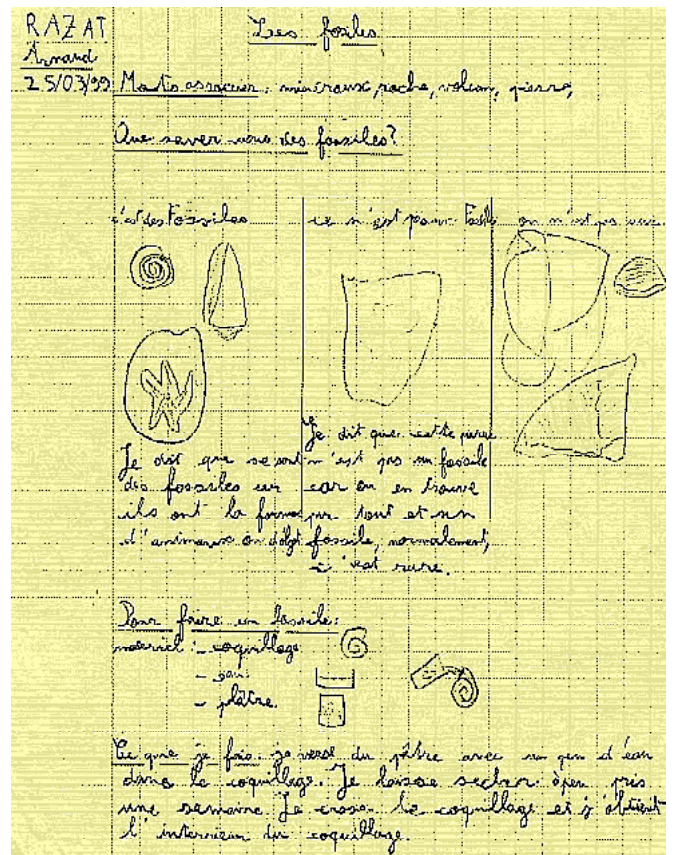 RAZAT
Les fosiles
Arnaud
25/03/99
Mots associer : mineraux, roche, volcan, pierre,
Que saver vous des fossiles?
c'est des Fossiles
ce n'est pas un Fossile
on n'est pas sur
Je dit que se sont
des fossiles car
ils ont la forme
d'animaux ou d'objet
Je dit que cette pierre
n'est pas un fossile
car on en trouve
par tout et un
fossile, normalement,
c'est rare.
Pour faire un fossile :
materiel : - coquillage
- eau
- plâtre.
Ce que je fais : je verse du plâtre avec un peu d'eau
dans le coquillage. Je laisse secher à peu pris
une semaine. Je casse le coquillage et j'obtient
l'interieur du coquillage.